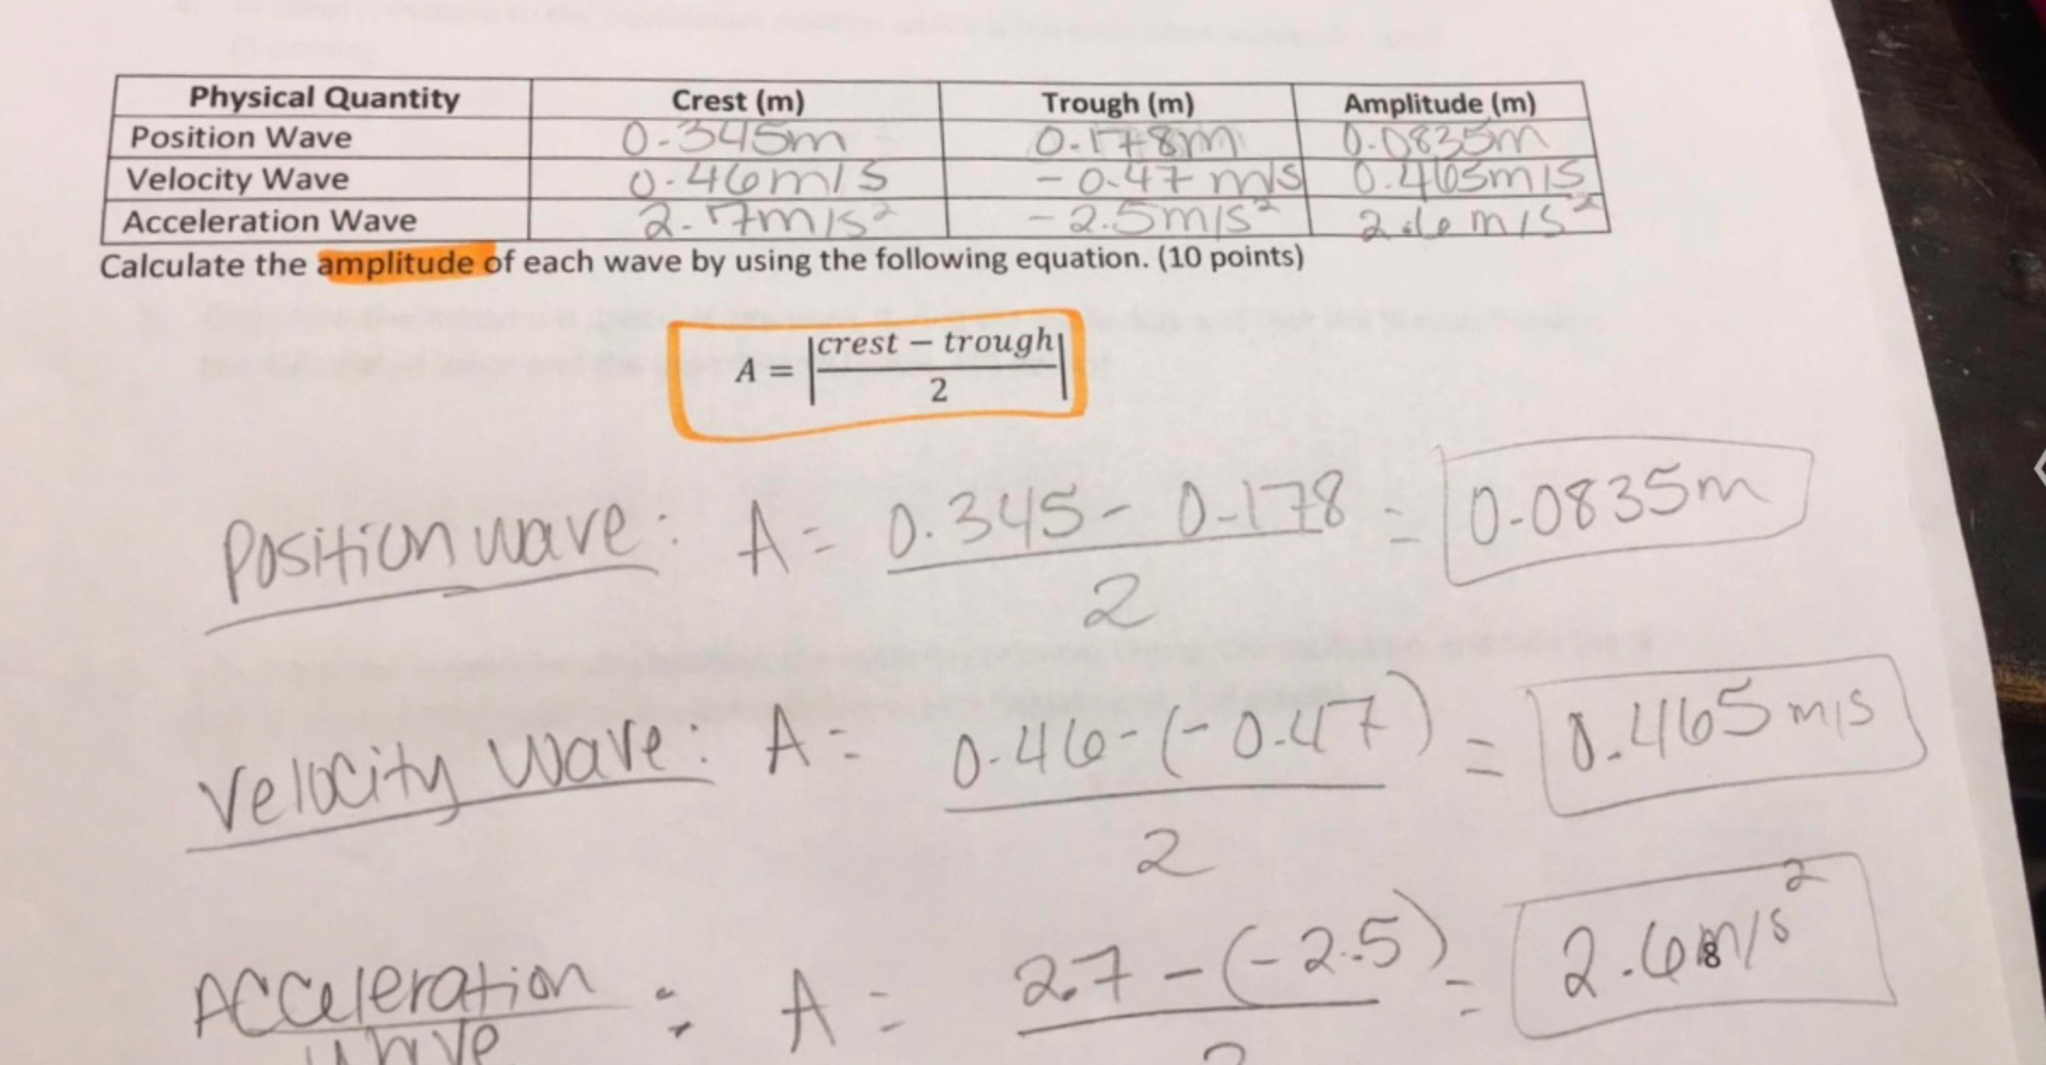 Physical Quantity Crest (m) Trough (m) Amplitude (m)
Position Wave 0.345m 0.178m 0.0835m
Velocity Wave 0.46m/s -0.47 m/s 0.465m/s
Acceleration Wave 2.7m/s² -2.5m/s² 2.6 m/s²
Calculate the amplitude of each wave by using the following equation. (10 points)
A = |crest − trough / 2|
Position wave: A = 0.345 - 0.178 / 2 = 0.0835m
Velocity wave: A = 0.46-(-0.47) / 2 = 0.465 m/s
Acceleration wave : A = 2.7 - (-2.5) / 2 = 2.6m/s²
8